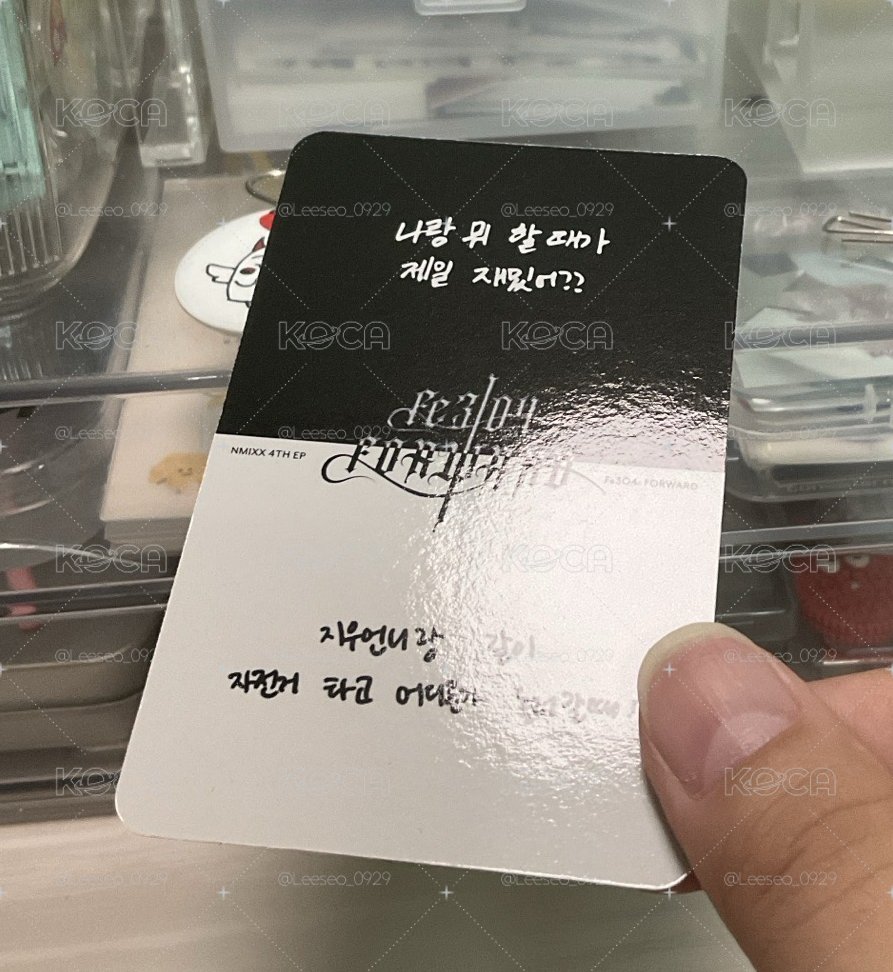 나랑 뭐 할 때가
제일 재밌어??
Fe3O4
FORWARD
NMIXX 4TH EP
Fe3O4: FORWARD
지우언니랑 같이
자전거 타고 어디론가 놀러갈때!
KOCA
@Leeseo_0929